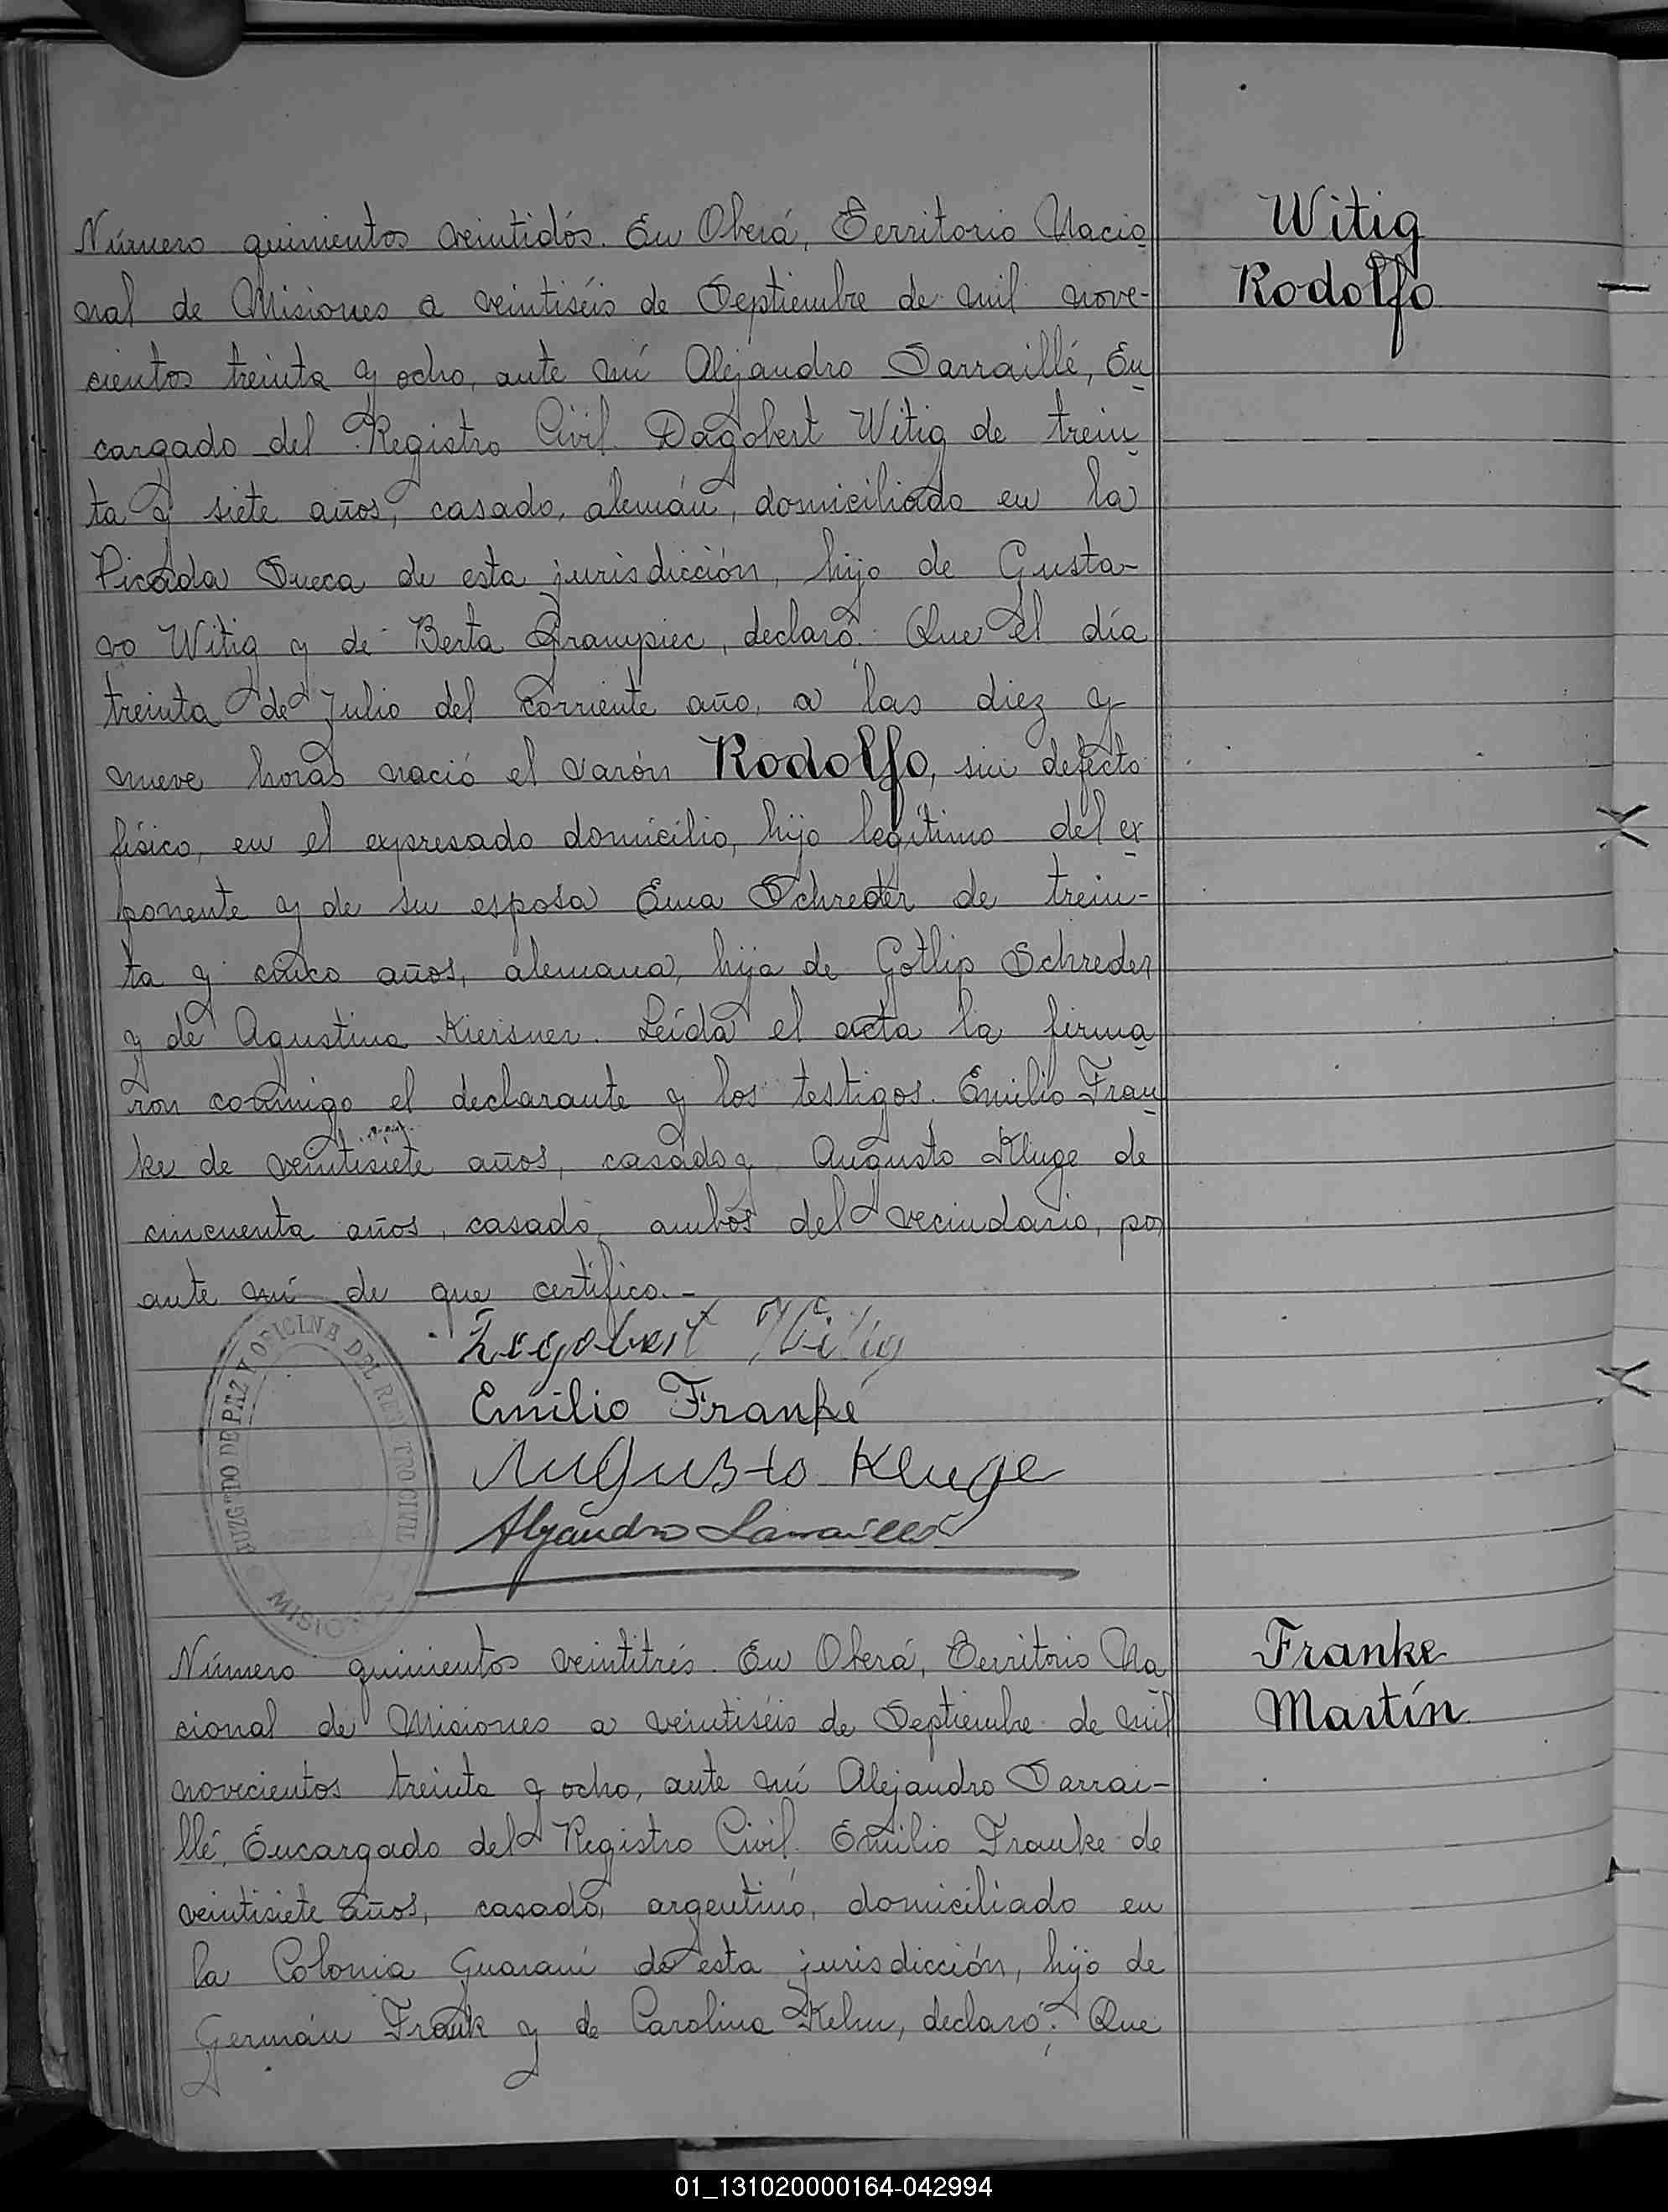 Witig
Rodolfo
Número quinientos veintidós. En Oberá, Territorio Nacio
nal de Misiones a veintiséis de Septiembre de mil nove-
cientos treinta y ocho, ante mí Alejandro Sarraillé, En
cargado del Registro Civil. Dagobert Witig de trein
ta y siete años, casado, alemán, domiciliado en la
Picada Sueca de esta jurisdicción, hijo de Gusta-
vo Witig y de Berta declaró: Que el día
treinta de Julio del corriente año, a las diez y
nueve horas nació el varón Rodolfo, sin defecto
físico, en el expresado domicilio, hijo legítimo del ex
ponente y de su esposa Ema Schreder de trein-
ta y cinco años, alemana, hija de Gotlip Schreder
y de Agustina Kiersner. Leída el acta la firma
ron conmigo el declarante y los testigos. Emilio Fran
ke de veintisiete años, casado y Augusto Kluge de
cincuenta años, casado, ambos del vecindario, por
ante mí de que certifico.-
Dagobert Witig
Emilio Franke
Augusto Kluge
Alejandro Sarraillé
JUZGADO DE PAZ Y OFICINA DEL REGISTRO CIVIL
Franke
Martín
Número quinientos veintitrés. En Oberá, Territorio Na
cional de Misiones a veintiséis de Septiembre de mil
novecientos treinta y ocho, ante mí Alejandro Sarrai-
llé, Encargado del Registro Civil. Emilio Franke de
veintisiete años, casado, argentino, domiciliado en
la Colonia Guaraní de esta jurisdicción, hijo de
Germán Frank y de Carolina Kelm, declaró: Que
01_131020000164-042994